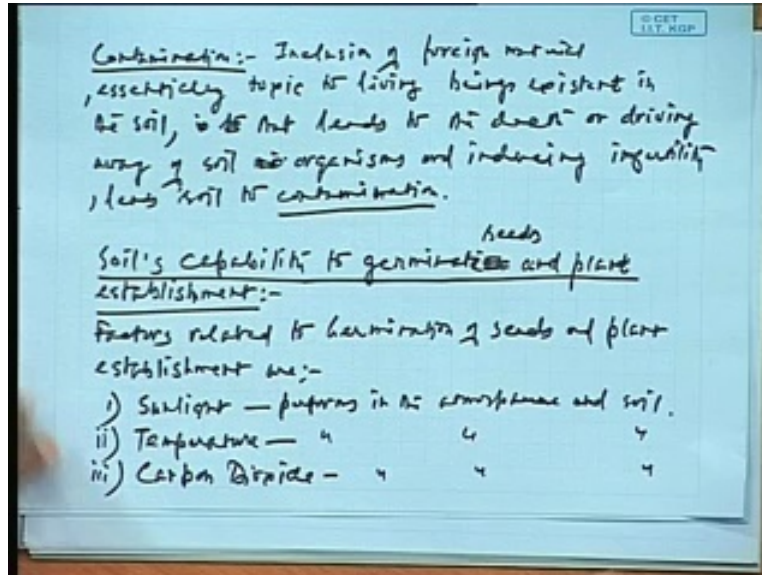 © CET
I.I.T. KGP
Contamination:- Inclusion of foreign material
, essentially toxic to living beings existent in
the soil, that leads to the death or driving
away of soil organisms and inducing infertility
, leads soil to contamination.
seeds
Soil's capability to germinate and plant
establishment:-
Factors related to Germination of seeds and plant
establishment are:-
i) Sunlight — performs in the atmosphere and soil.
ii) Temperature — " " "
iii) Carbon Dioxide - " " "